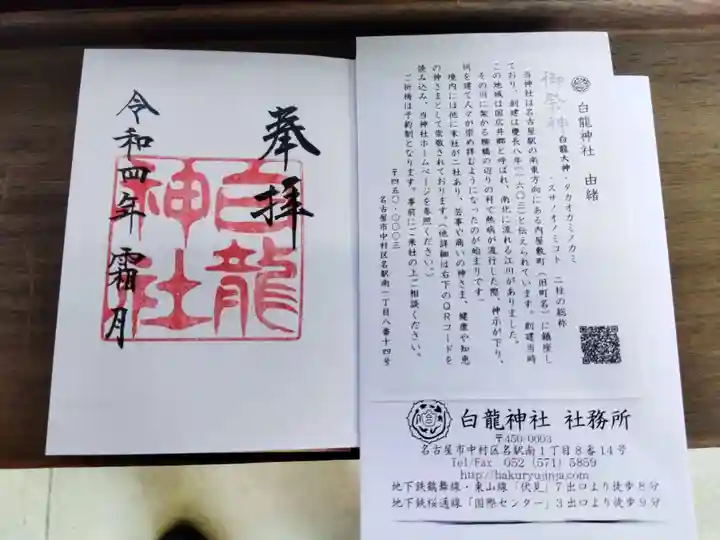 奉拝
白龍
神社
令和四年 霜月
白龍神社 由緒
御祭神
白龍大神・タカオカミノカミ
・スサノオノミコト 二柱の総称
当神社は名古屋駅の南東方向にある内屋敷町(旧町名)に鎮座し
ており、創建は慶長八年(一六〇三)と伝えられています。創建当時
この地域は国広井郷と呼ばれ、南北に流れる江川がありました。
その川に架かる柳橋の辺りの村で熱病が流行した際、神示が下り、
祠を建て人々が崇め拝むようになったのが始まりです。
境内には他に末社が二社あり、芸事や商いの神さま、健康や知恵
の神さまとして崇敬されております。(他詳細は右下のQRコードを
読み込み、当神社ホームページを参照ください。)
ご祈祷は予約制となります。事前にご来社の上ご相談ください。
〒四五〇-〇〇〇三
名古屋市中村区名駅南一丁目八番十四号
白龍神社 社務所
〒450-0003
名古屋市中村区名駅南1丁目8番14号
Tel/Fax 052 (571) 5859
http://hakuryujinja.com
地下鉄鶴舞線・東山線「伏見」7出口より徒歩8分
地下鉄桜通線「国際センター」3出口より徒歩9分